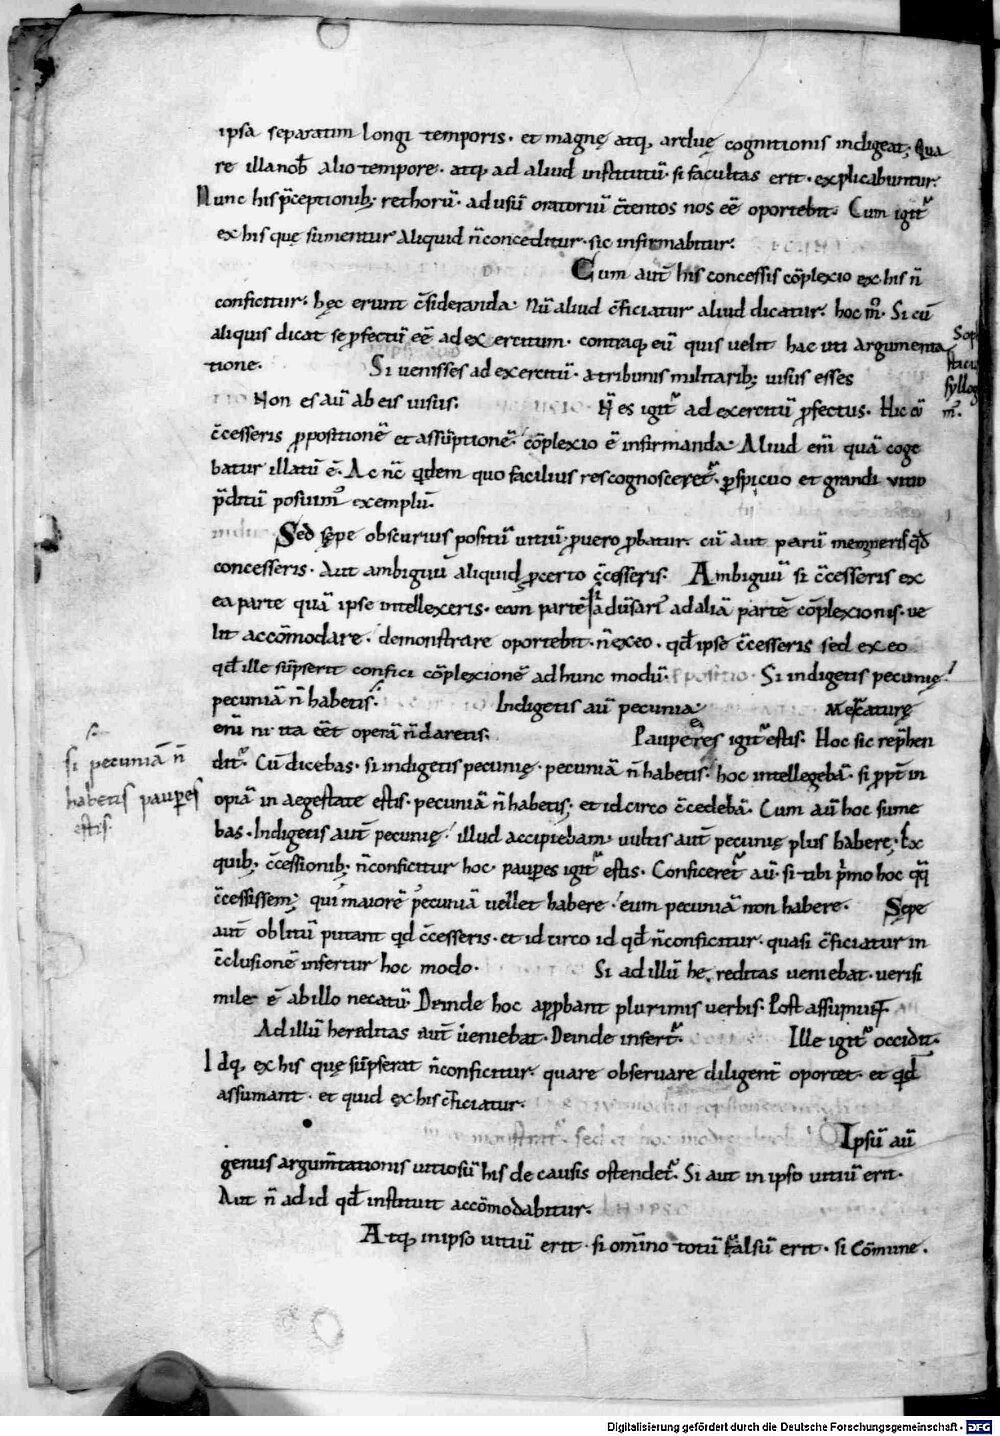 ipsa separatim longi temporis· et magnę atq; arduę cognitionis indigeat; Qua
re illa nob̄ alio tempore· atq; ad aliud institutū· si facultas erit· explicabuntur·
Nunc his p̄ceptionib; rethorū· ad usū oratoriū c̄tentos nos eē oportebit· Cum igit᷑
ex his quę sumentur aliquid n̄ conceditur· sic infirmabitur·
Cum aut̄ his concessis cōplexio ex his n̄
conficitur· hęc erunt c̄sideranda· Nū aliud c̄ficiatur aliud dicatur· hoc m̊· Si cū
aliquis dicat se ꝓfectū eē ad exercitum· contraq; eū quis uelit hac uti argumenta
tione· Si uenisses ad exercitū· a tribunis militarib; uisus esses
Non es aū ab eis uisus· N̄ es igit᷑ ad exercitū ꝓfectus· Hic cū
Sop
sticu
syllog
m᷒·
c̄cesseris ꝓpositionē et assūptionē· cōplexio ē infirmanda· Aliud eni̅ quā coge
batur illatū ē· Ac nc̄ qdem quo facilius res cognosceret᷑· ꝑspicuo et grandi uitio
p̄ditū posuim᷒ exemplū·
Sed sępe obscurius positū uitiū· ꝓ uero ꝓbatur· cū aut parū memineris qđ
concesseris· Aut ambiguū aliquid ꝓ certo c̄cesseris· Ambiguū si c̄cesseris ex
ea parte quā ipse intellexeris· eam partē si aduersari᷒ ad aliā partē cōplexionis· ue
lit accōmodare· demonstrare oportebit· n̄ ex eo· qđ ipse c̄cesseris sed ex eo
qđ ille sūpserit confici cōplexionē ad hunc modū· Si indigetis pecunię
pecuniā n̄ habetis· Indigetis aū pecunia Mercaturę
eni̅ ni ita eēt operā n̄ daretis· Pauperes igit᷑ estis· Hoc sic rep̄hen
si pecuniā n̄
habetis paupes
estis·
dit᷑· Cū dicebas· si indigetis pecunię· pecuniā n̄ habetis· hoc intellegebā· si ꝓpt̄ in
opiā in aegestate estis· pecuniā n̄ habetis; et id circo c̄cedebā· Cum aū hoc sume
bas· Indigetis aut̄ pecunię· illud accipiebam· uultis aut̄ pecunię plus habere· Ex
quib; c̄cessionib; n̄ conficitur hoc· pauꝑes igit᷑ estis· Conficeret᷑ aū· si tibi p̄mo hoc qq̄
c̄cessissem; qui maiorē pecuniā uellet habere· eum pecuniā non habere· Sępe
aut̄ oblitū putant qđ c̄cesseris· et id circo id qđ n̄ conficitur· quasi c̄ficiatur in
c̄clusionē infertur hoc modo· Si ad illū he reditas ueniebat· uerisi
mile ē ab illo necatū· Deinde hoc apꝓbant plurimis uerbis· Post assumunt̄
Ad illū hereditas aut̄ ueniebat· Deinde infert᷑· Ille igit᷑ occidit·
Idq; ex his quę sūpserat n̄ conficitur· quare obseruare diligent̄ oportet· et qđ
assumant· et quid ex his c̄ficiatur·
Ipsū aū
genus argum̄tationis uitiosū his de causis ostendet᷑· Si aut in ipso uitiū erit·
Aut n̄ ad id qđ instituit accōmodabitur·
Atq; in ipso uitiū erit· si om̄ino totū falsū erit· si Cōmune·
Digitalisierung gefördert durch die Deutsche Forschungsgemeinschaft - DFG